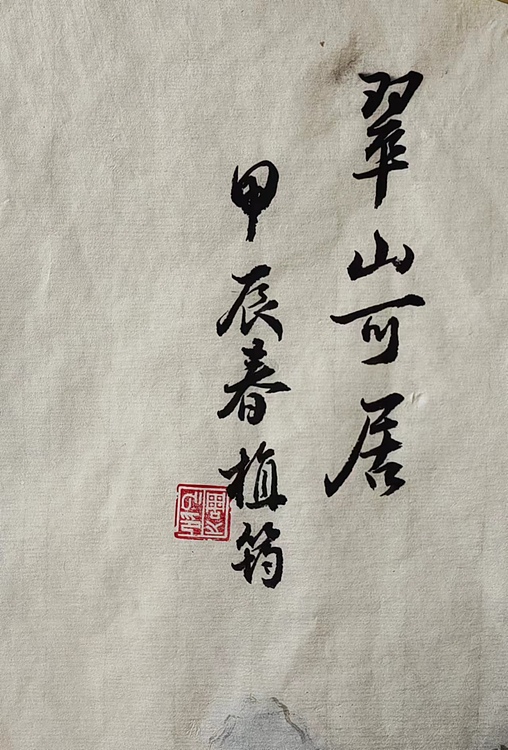 翠山可居
甲辰春植筠